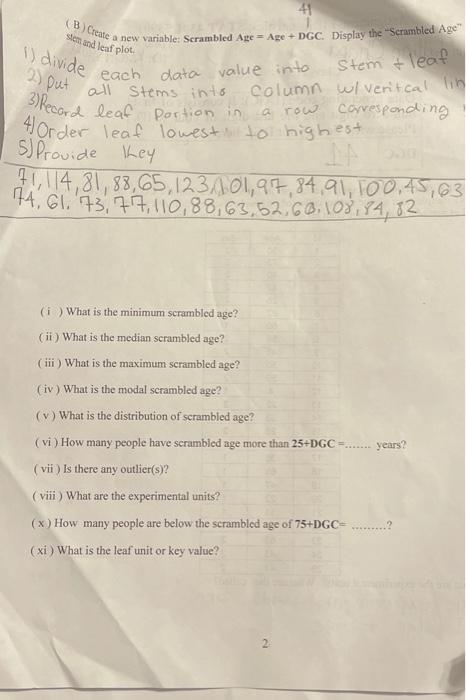 41
(B) Create a new variable: Scrambled Age = Age + DGC. Display the "Scrambled Age"
stem and leaf plot.
1) divide each data value into stem + leaf
2) Put all stems into column w/ veritcal lin
3) Record leaf portion in a row corresponding
4) Order leaf lowest to highest
5) Provide key
71, 114, 81, 88, 65, 123, 101, 97, 84, 91, 100, 45, 63
74, 61, 73, 77, 110, 88, 63, 52, 60, 108, 84, 82
(i ) What is the minimum scrambled age?
(ii ) What is the median scrambled age?
(iii ) What is the maximum scrambled age?
(iv ) What is the modal scrambled age?
(v ) What is the distribution of scrambled age?
(vi ) How many people have scrambled age more than 25+DGC =....... years?
(vii ) Is there any outlier(s)?
(viii ) What are the experimental units?
(x ) How many people are below the scrambled age of 75+DGC= .........?
(xi ) What is the leaf unit or key value?
2